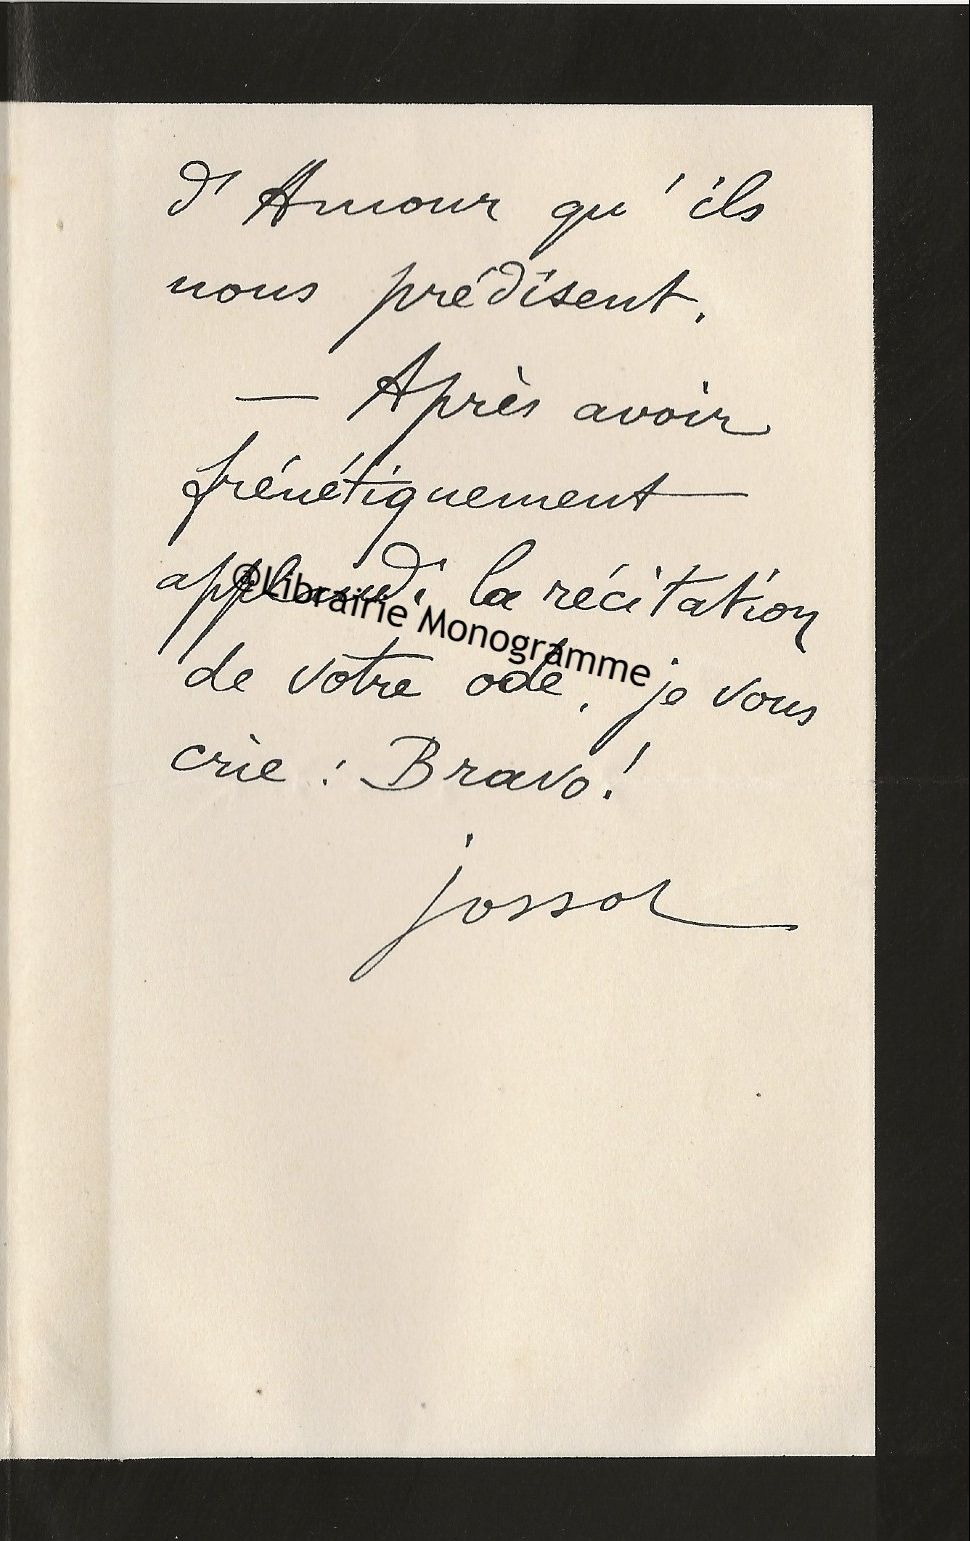 d'Amour qu'ils
nous prédisent.
— Après avoir
frénétiquement
applaudi la récitation
©Librairie Monogramme
de votre ode, je vous
crie : Bravo!
jossot